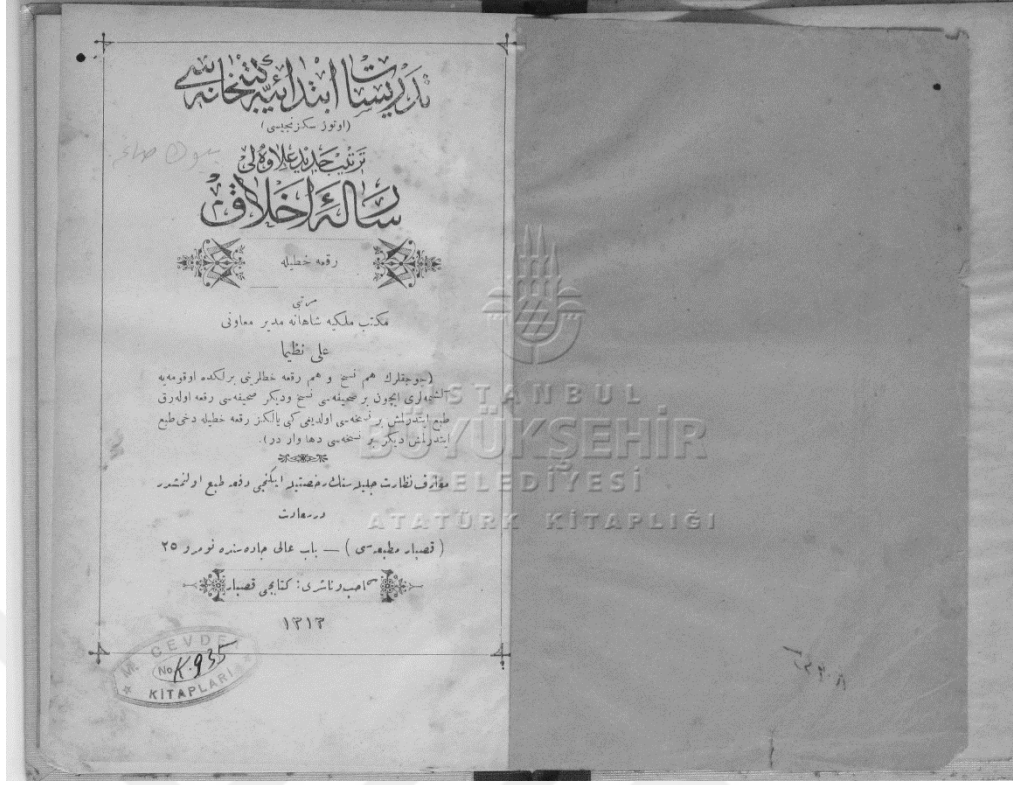 تدريسات ابتدائيه كتبخانه سى
(اوتوز سكزنجيسى)
ترتيب جديد علاوه لى
رسالۀ اخلاق
رقعه خطيله
مرتبى
مكتب ملكيه شاهانه مدير معاونى
على نظيما
(چوجقلرك هم نسخ و هم رقعه خطلرينى برلكده اوقومه يه
آلشمه لرى ايچون بر صحيفه سى نسخ وديكر صحيفه سى رقعه اوله رق
طبع ايتدرلمش بر نسخه سى اولديغى كبى يالكز رقعه خطيله دخى طبع
ايتدرلمش ديكر بر نسخه سى دها وار در).
معارف نظارت جليله سنك رخصتيله ايكنجى دفعه طبع اولنمشدر
درسعادت
(قصبار مطبعه سى) — باب عالى جاده سنده نومرو ٢٥
صاحب و ناشرى: كتابجى قصبار
١٣١٣
M. CEVDET
No K. 935
KİTAPLARI
İSTANBUL
BÜYÜKŞEHİR
BELEDİYESİ
ATATÜRK KİTAPLIĞI